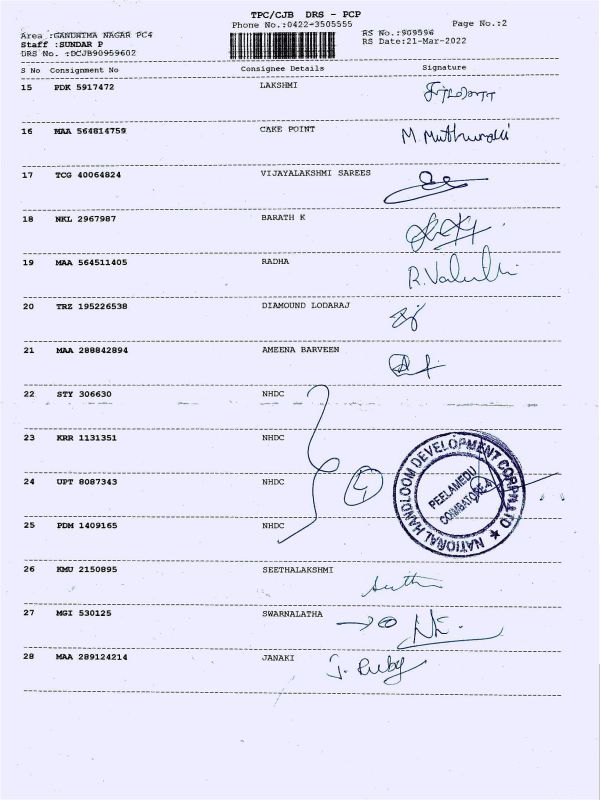 TPC/CJB DRS - PCP
Phone No.:0422-3505555 Page No.:2
Area :GANDHIMA NAGAR PC4 RS No.:909596
Staff :SUNDAR P RS Date:21-Mar-2022
DRS No. :DCJB90959602
S No Consignment No Consignee Details Signature
15 PDK 5917472 LAKSHMI
16 MAA 564814759 CAKE POINT M. Muthuvalli
17 TCG 40064824 VIJAYALAKSHMI SAREES
18 NKL 2967987 BARATH K
19 MAA 564511405 RADHA
20 TRZ 195226538 DIAMOUND LODARAJ
21 MAA 288842894 AMEENA BARVEEN
22 STY 306630 NHDC
23 KRR 1131351 NHDC
24 UPT 8087343 NHDC 4
25 PDM 1409165 NHDC
NATIONAL HANDLOOM DEVELOPMENT CORPN LTD
PEELAMEDU
COIMBATORE-4
26 KMU 2150895 SEETHALAKSHMI
27 MGI 530125 SWARNALATHA
28 MAA 289124214 JANAKI J. Ruby